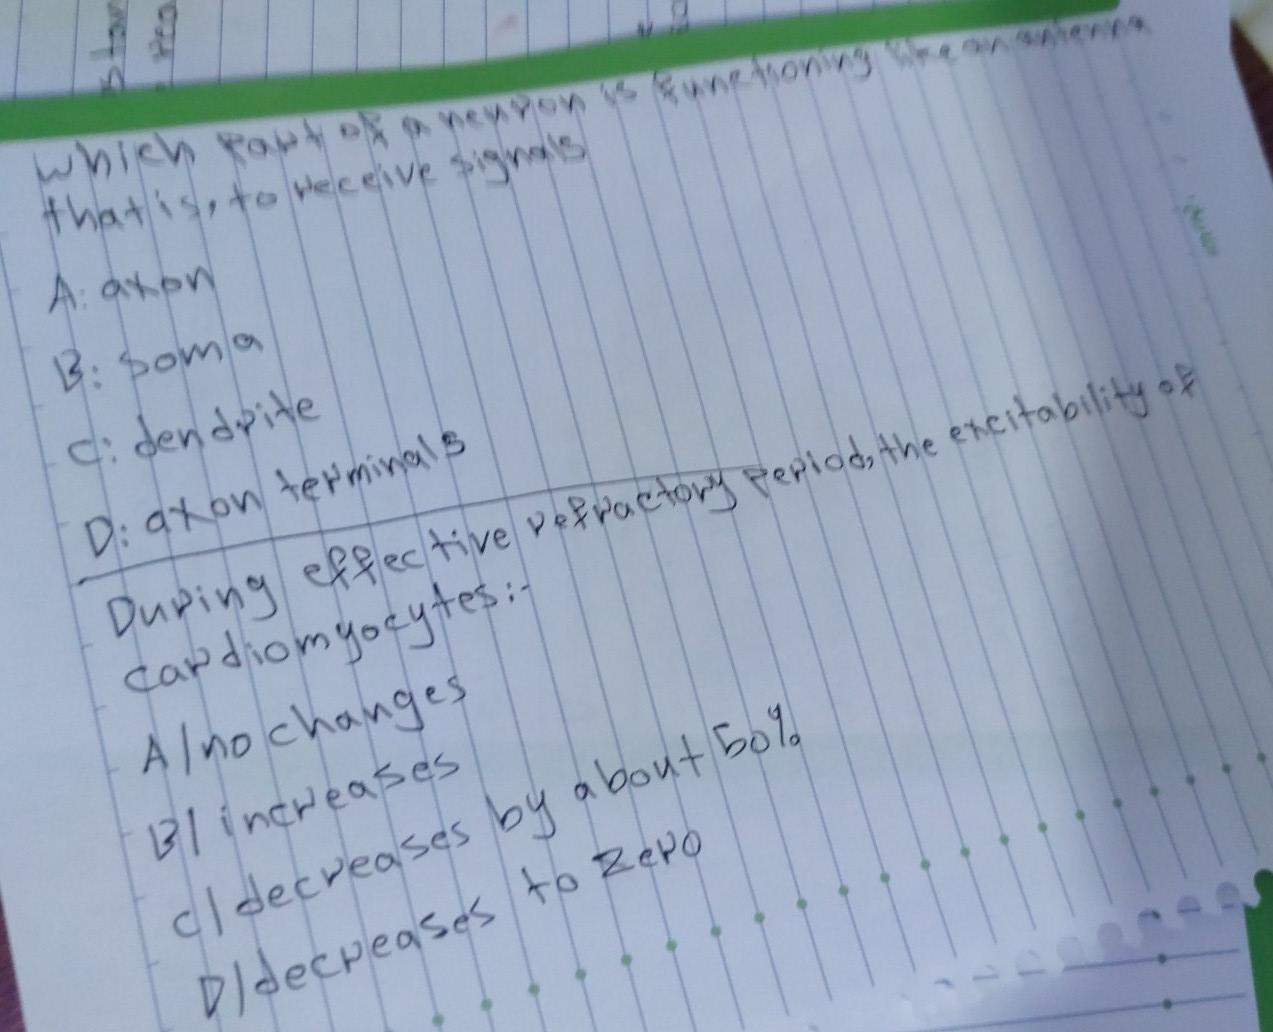 which part of a neuron is functioning like an antenna
that is, to receive signals
A: axon
B: soma
C: dendrite
D: axon terminals
During effective refractory period, the excitability of
cardiomyocytes:-
A/ no changes
B/ increases
C/ decreases by about 50%
D/ decreases to zero